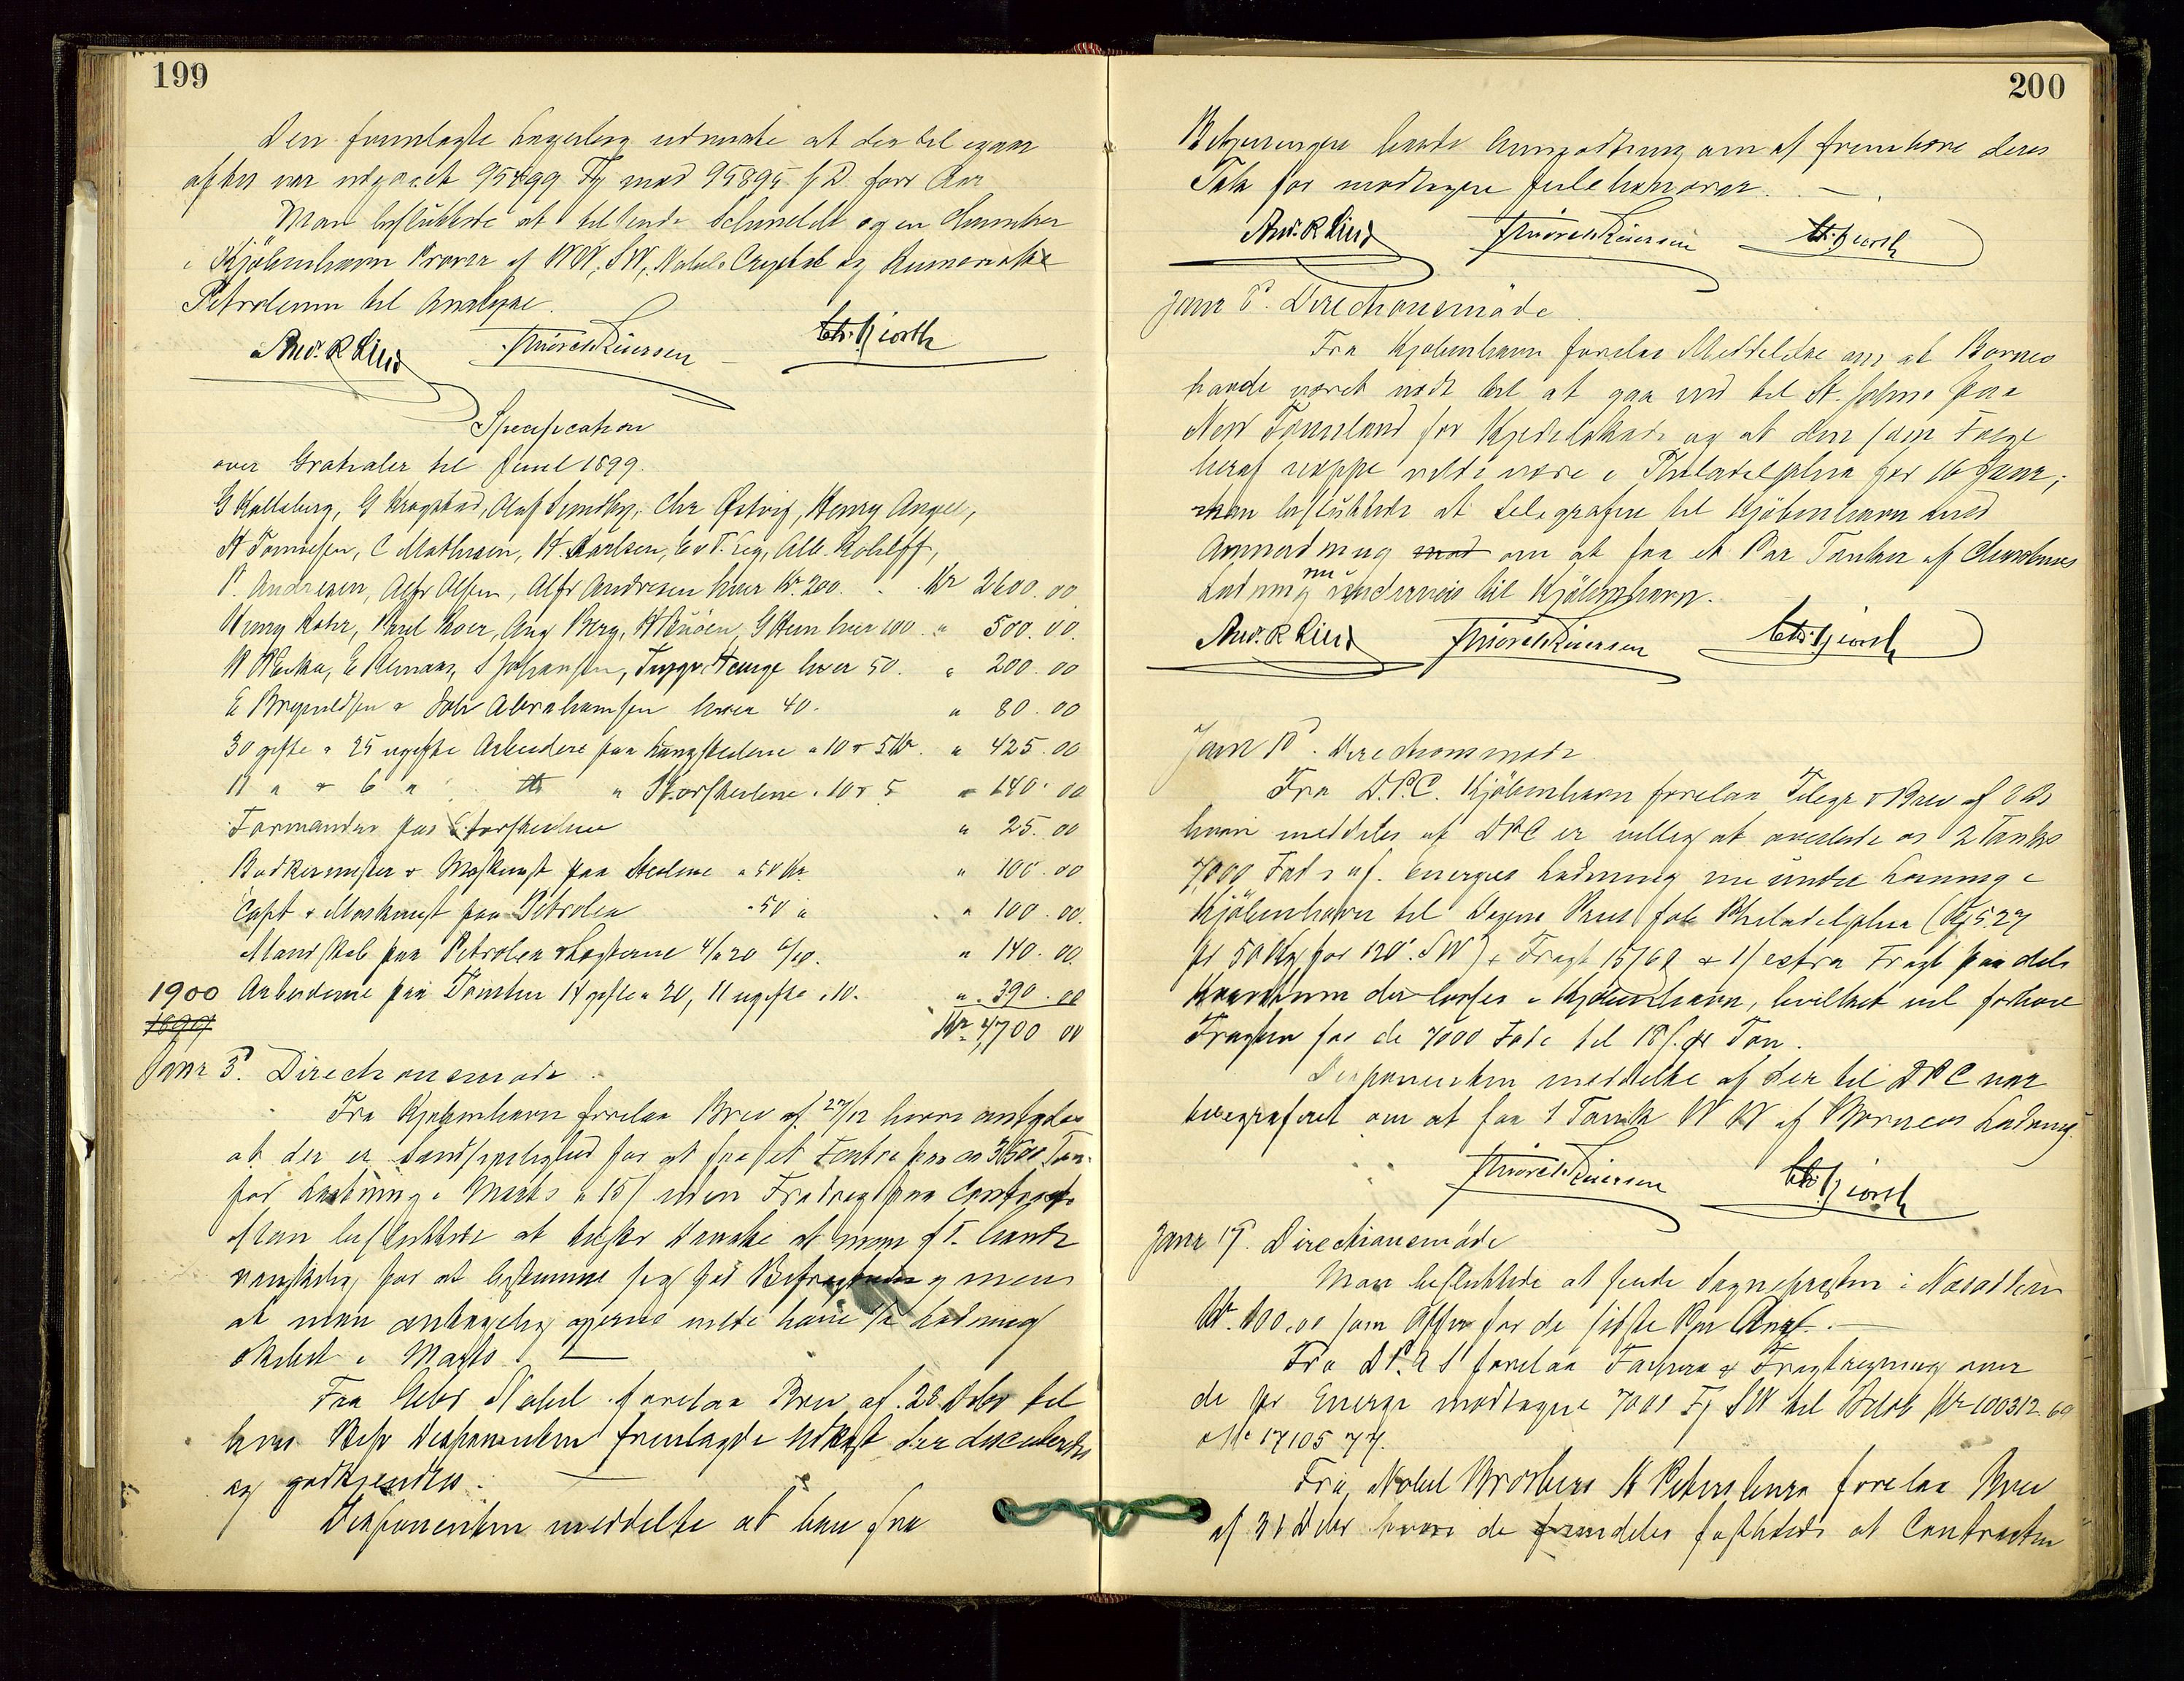 199
Den fremlagte Lagerbog udviste at der til igaar
aften var udgaaet 95799 Fj mod 95895 s. D. forr Aar
Man besluttede at tilsende Schmelck og en Chemiker
i Kjöbenhavn Prøver af WW, SW, Nobels Crystal og Rumæniske
Petroleum til Analyse.
Andr. R Lind Thorvald Liversen Chr. Hjorth
Specification
over Gratialer til Juul 1899.
G Kalleberg, G Kragstad, Olaf Sundby, Chr Østvig, Henry Angell,
H Tønnesen, C Mathisen, H. Karlsen, E v T. Lig, Alb. Rohlff,
P. Andresen, Alfr Olsen, Alfr Andresen hver Kr. 200. Kr 2600.00
Henry Rohr, Paul Hoer, Aug Berg, H Buöen, G Hem hver 100 " 500.00.
E Remann, S Johansen, hver 50. " 200.00
E Brynildsen & Joh Abrahamsen hver 40. " 80.00
30 gifte & 25 ugifte Arbeidere paa Langskærene a 10 & 5 Kr. " 425.00
11 " & 6 " " Storskærene a 10 & 5 " 140.00
Formanden paa Storskærene " 25.00
Bødkermester & Maskinist paa Skærene a 50 Kr. " 100.00
Capt & Maskinist paa Petrolea a 50 " " 100.00.
Mandskab paa Petrolea & Lægterne 4/a 20 6/10. " 140.00.
1900 Arbeiderne paa Tomten 14 gifte a 20, 11 ugifte a 10. " 390.00
1899 Kr. 4,700 00
Janr 3. Directionsmøde.
Fra Kjøbenhavn forelaa Brev af 27/12 hvori antydes
at der er Sandsynlighed for at faa et Certe paa ca 3500 Ton
for Ladning i Marts a 15/ uden Fradrag paa Contracts
Man besluttede at tilskr Danske at man f. T. havde
vanskelig for at bestemme sig for Befragtning men
at man antagelig gjerne vilde have 1/2 Ladning
skibet i Marts.
Fra Gebr Nobel forelaa Brev af 28 Debr til
hvis Besv Disponenten fremlagde Udkast der discuteredes
og godkjendtes.
Disponenten meddelte at han fra
200
Betjeningen havde Anmodning om at fremføre deres
Tak for modtagne Julehonorar.
Andr. R Lind Thorvald Liversen Chr. Hjorth
Janr 8. Directionsmøde.
Fra Kjøbenhavn forelaa Meddelelse om at Borneo
havde været nødt til at gaa ind til St. Johns paa
New Foundland for Kjedelskade og at den som Følge
heraf neppe vilde være i Philadelphia før 16 Janr;
man besluttede at telegrafere til Kjöbenhavn med
Anmodning mod om at faa et Par Tanker af
Ladning nu underveis til Kjöbenhavn.
Andr. R Lind Thorvald Liversen Chr. Hjorth
Janr 10. Directionsmøde
Fra D.P.C. Kjöbenhavn forelaa Telegr & Brev af 8 ds
hvori meddeles at DPC er villig at overlade os 2 Tanks
7,000 Fad af Energies Ladning nu under Losning i
Kjöbenhavn til Dagens Priis fob Philadelphia (Kr 5.27
pr 50 Kg for 120° SW) & Fragt 15/6 & 1/ extra Fragt paa dels
Kvantum der losses i Kjøbenhavn, hvilket vil forhøie
Fragten for de 7000 Fade til 18/. pr Ton.
Disponenten meddelte at der til DPC var
telegraferet om at faa 1 Tank W W af Borneos Ladning.
Thorvald Liversen Chr. Hjorth
Janr 17. Directionsmøde
Man besluttede at sende Sognepresten i Næsodden
Kr. 100.00 som Offer for de sidste Par Aar.
Fra D.P. A S forelaa Factura & Fragtregning over
de pr Energi modtagne 7001 Fj SW til Beløb Kr 100312.60
& Kr 17105 77.
Fra Nobel Brothers St Petersburg forelaa Brev
af 31 Debr hvori de fremdeles fastholdt at Contracten